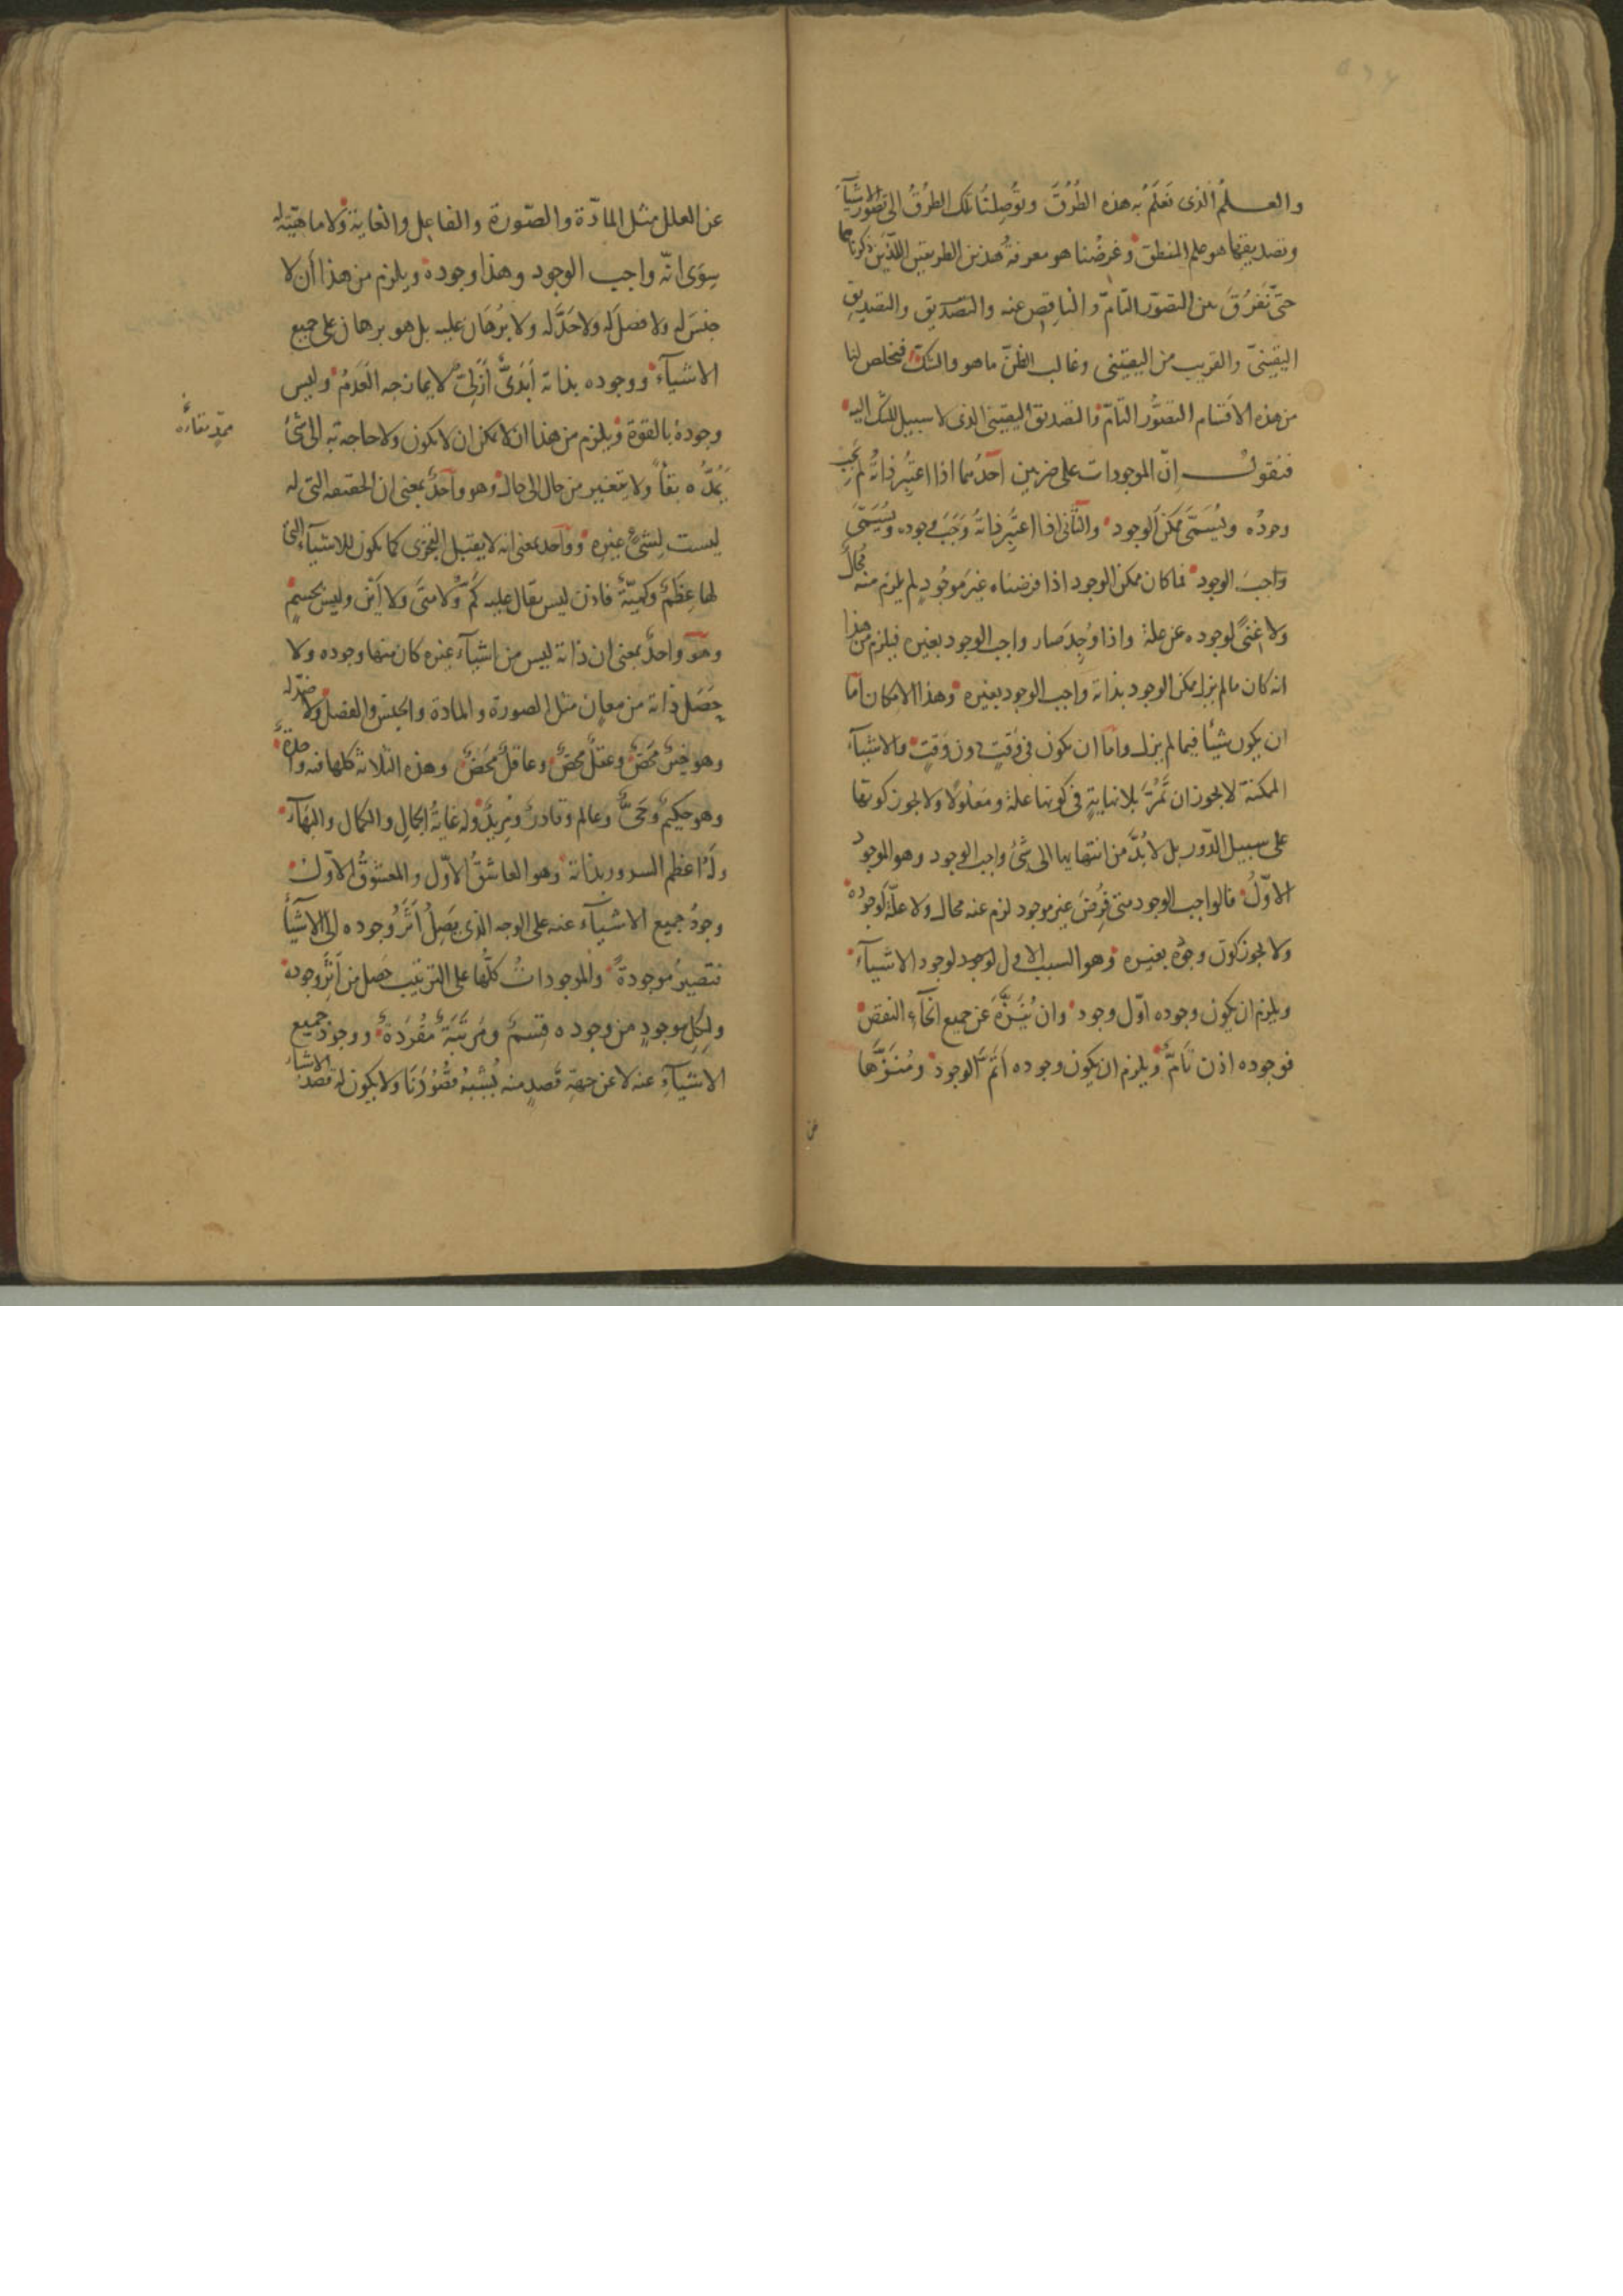 والعلمُ الذى نَعلَمُ به هذه الطُرُقَ وتُوصِلنُا تلك الطرُقُ الى تصَوّر الاشيآءِ
وتصديقها هو علم المنطق وغرضُنا هو معرفةُ هذين الطريقين اللذَين ذكرناهما
حتى نَفرُقَ بين التصوّر التامّ والناقِص عنه والتصديق والتصديق
اليقينىّ والقريب من اليقينى وغالب الظنّ ما هو والشكّ فيخلص لنا
من هذه الاقسام التصوُّر التامّ والتصديق اليقينى الذى لا سبيل للشك اليه
فنقول اِنّ الموجودات على ضربين اَحدُهما اذا اعتُبِر ذاتُه لم يجب
وجودُه ويُسَمّى ممكنَ الوجود والثانى اذا اعتُبِر ذاتُه وَجَبَ وجوده ويُسَمَّى
واجبَ الوجود فما كان ممكن الوجود اذا فرضناه غيرَ موجُودٍ لم يلزم منه مُحالٌ
ولا غنىً لوجوده عن علة واذا وُجِدَ صار واجب الوجود بغيره فيلزم من هذا
انه كان مما لم يزل ممكن الوجود بذاته واجب الوجود بغيره وهذا الامكان امّا
ان يكون شيئًا فيما لم يزل وامّا ان يكون فى وَقتٍ دون وَقتٍ والاشيآء
الممكنة لا يجوز ان تَمُرَّ بلا نهايةٍ فى كونها علة ومَعْلولًا ولا يجوز كونها
على سبيل الدّور بل لا بُدَّ من انتهايها الى شئ واجب الوجود وهو الموجودُ
الاوّلُ فالواجب الوجود متى فُرِضَ غير موجود لزم عنه محال ولا علّة لوجوده
ولا يجوز كون وجوده بغيره وهو السبب الاول لوجود لوجود الاشيآء
ويلزم ان يكون وجوده اوّل وجود وان يُنَزَّهَ عن جميع انحآءِ النقص
فوجوده اذن تَامٌّ ويلزم ان يكون وجوده اَتمَّ الوجود ومُنَزَّهًا
عن
عن العلل مثل المادّة والصّورة والفاعِل والغاية ولا ماهيّة له
سِوَى انّه واجب الوجود وهذا وجوده ويلزم من هذا أن لا
جنسَ له ولا فصلَ له ولا حَدَّ له ولا بُرهَان عليه بل هو برهان على جميع
الاشيآء ووجوده بذاته أبَدىٌّ أَزَلِىٌّ لا يمازجه العَدَمُ وليس
وجودهُ بالقوة ويلزم من هذا ان لا يمكن ان لا يكون ولا حاجة به الى شئ
يَمُدُّه بقاً ولا يتغير من حال الى حال وهو واحدٌ بمعنى ان الحقيقه التى له
ممّدٍ بقاءَُه
ليست لِشئٍ غيره وواحد بمعنى انه لا يقبل التجزى كما يكون للاشيآء التى
لها عِظَمٌ وكميّةٌ فاذن ليس يقال عليه كَمٌ ولا متَى ولا أَيْن وليس بجسمٍ
وهو واحدٌ بمعنى ان ذاته ليس من اشيآء غيره كان منها وجوده ولا
حَصَل ذاته من معانٍ مثل الصورة والمادة والجنس والفصل ولا ضدّ له
وهو خيرٌ محَضٌ وعقلٌ محضٌ وعاقلٌ محَضٌ وهذه الثلاثة كلها فيه واحدةٌ
وهو حكيمٌ وحَىٌّ وعالم وقادرٌ ومريدٌ وله غايةُ الجمالِ والكمال والبهآء
ولهُ اعظم السرور بذاته وهو العاشقُ الاوّل والمعشوقُ الاوّل
وجودُ جميع الاشيآء عنه على الوجه الذى يَصِلُ اَثَرُ وجوده الى الاشيآءِ
فتصيرُ موجودةً والموجوداتُ كلُّها على الترتيب حَصل من أَثَرِ وجوده
ولكِلِّ موجودٍ من وجوده قِسمٌ ومَرتَبَةٌ مفْرَدَةٌ ووجودُ جميع
الاشيآءِ عنه لا عن جهةِ قَصدٍ منه يُشبِهُ قصُوُدَنَا ولا يكون له قصدُ الاشيآء